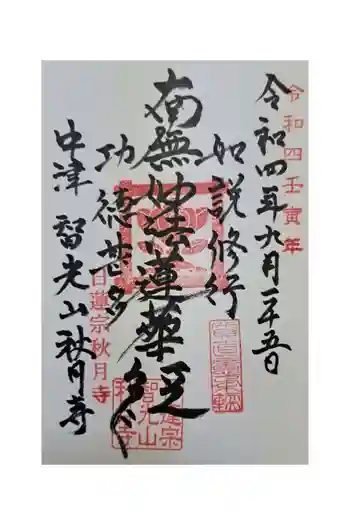 令和四壬寅年
令和四年九月二十五日
如説修行
南無妙法蓮華経
功徳甚多
日蓮宗秋月寺
中津 智光山秋月寺